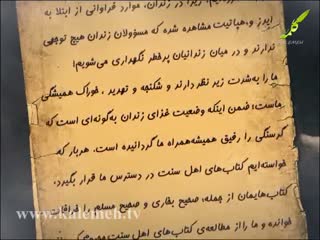 زندان، موارد فراوانی از ابتلا به
ایدز و هپاتیت مشاهده شده که مسؤولان زندان هیچ توجهی
ندارند و در میان زندانیان پرخطر نگهداری می‌شویم!
ما را به‌شدت زیر نظر دارند و شکنجه و تهدید، خوراک همیشگی
ماست؛ ضمن اینکه وضعیت غذای زندان به‌گونه‌ای است که
گرسنگی را رفیق همیشه‌همراه ما گردانیده است. هربار که
خواسته‌ایم کتاب‌های اهل سنت در دسترس ما قرار بگیرد،
کتاب‌هایمان از جمله، صحیح بخاری و صحیح مسلم را خرافات
خوانده و ما را از مطالعه‌ی کتاب‌های اهل سنت
www.kalemeh.tv